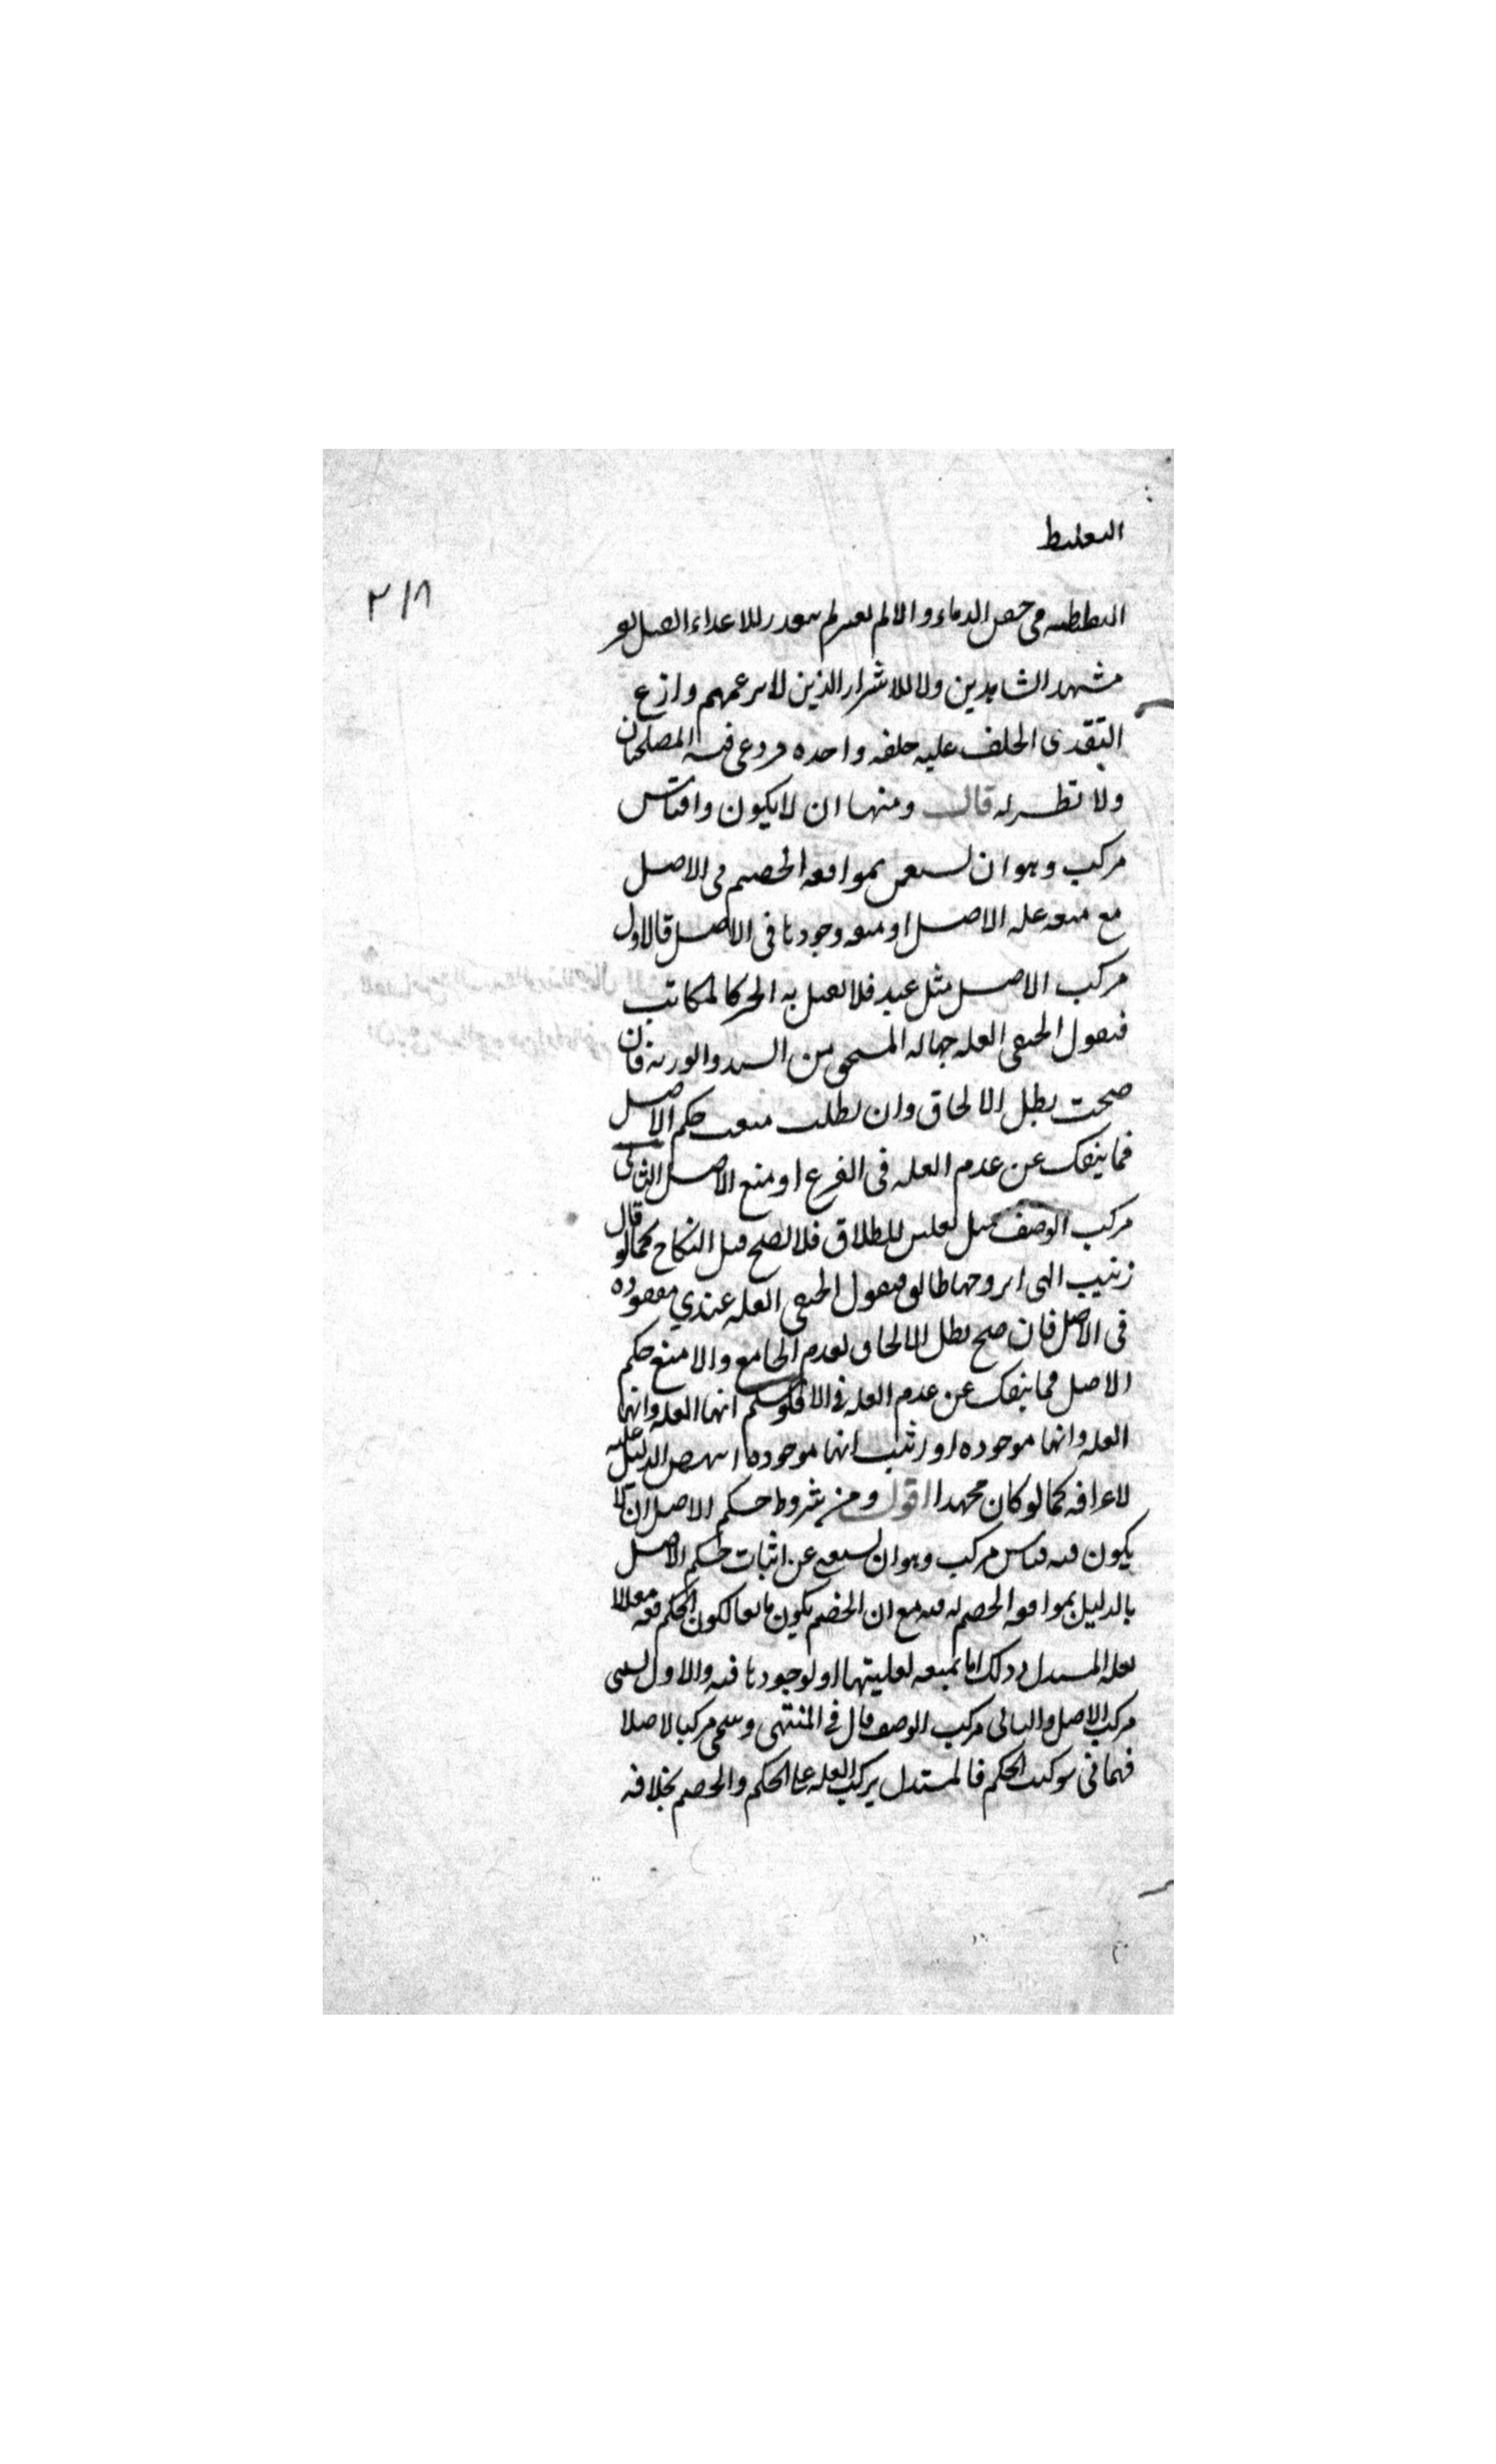 التغليط
٢١٨
مشهد الشاهدين ولا للاشرار الذين لا يزعهم وازع
التقدى الحلف عليه حلفه واحده فروعى فيه المصلحتان
ولا نظير له قال ومنها ان لا يكون ذا قياس
مركب وهو ان يستغنى بموافقه الخصم فى الاصل
مع منعه عله الاصل او منعه وجودها فى الاصل فالاول
مركب الاصل مثل عبد فلا يقتل به الحر كالمكاتب
فيقول الحنفى العله جهاله المستحق من السيد والورثه فان
صحت بطل الالحاق وان بطلت منعت حكم الاصل
فما ينفك عن عدم العله فى الفرع او منع الاصل الثانى
مركب الوصف مثل تعليق للطلاق فلا يصح قبل النكاح كما لو قال
زينب التى اتزوجها طالق فيقول الحنفى العله عندي مفقوده
فى الاصل فان صح بطل الالحاق لعدم الجامع والا منع حكم
الاصل فما ينفك عن عدم العله فى الا فلو سلم انها العله وانها
العله وانها موجوده او اثبت انها موجوده انتهض الدليل عليه
لاعترافه كما لو كان مجتهدا اقول ومن شروط حكم الاصل ان لا
يكون فيه قياس مركب وهو ان يستغنى عن اثبات حكم الاصل
بالدليل بموافقه الخصم له فيه مع ان الخصم يكون مانعا لكون الحكم فيه معللا
بعله المستدل وذلك اما بمنعه لعليتها او لوجودها فيه والاول يسمى
مركب الاصل والثانى مركب الوصف قال فى المنتهى وسمى مركبا لاختلا
فهما فى تركيب الحكم فالمستدل يركب العله على الحكم والخصم بخلافه